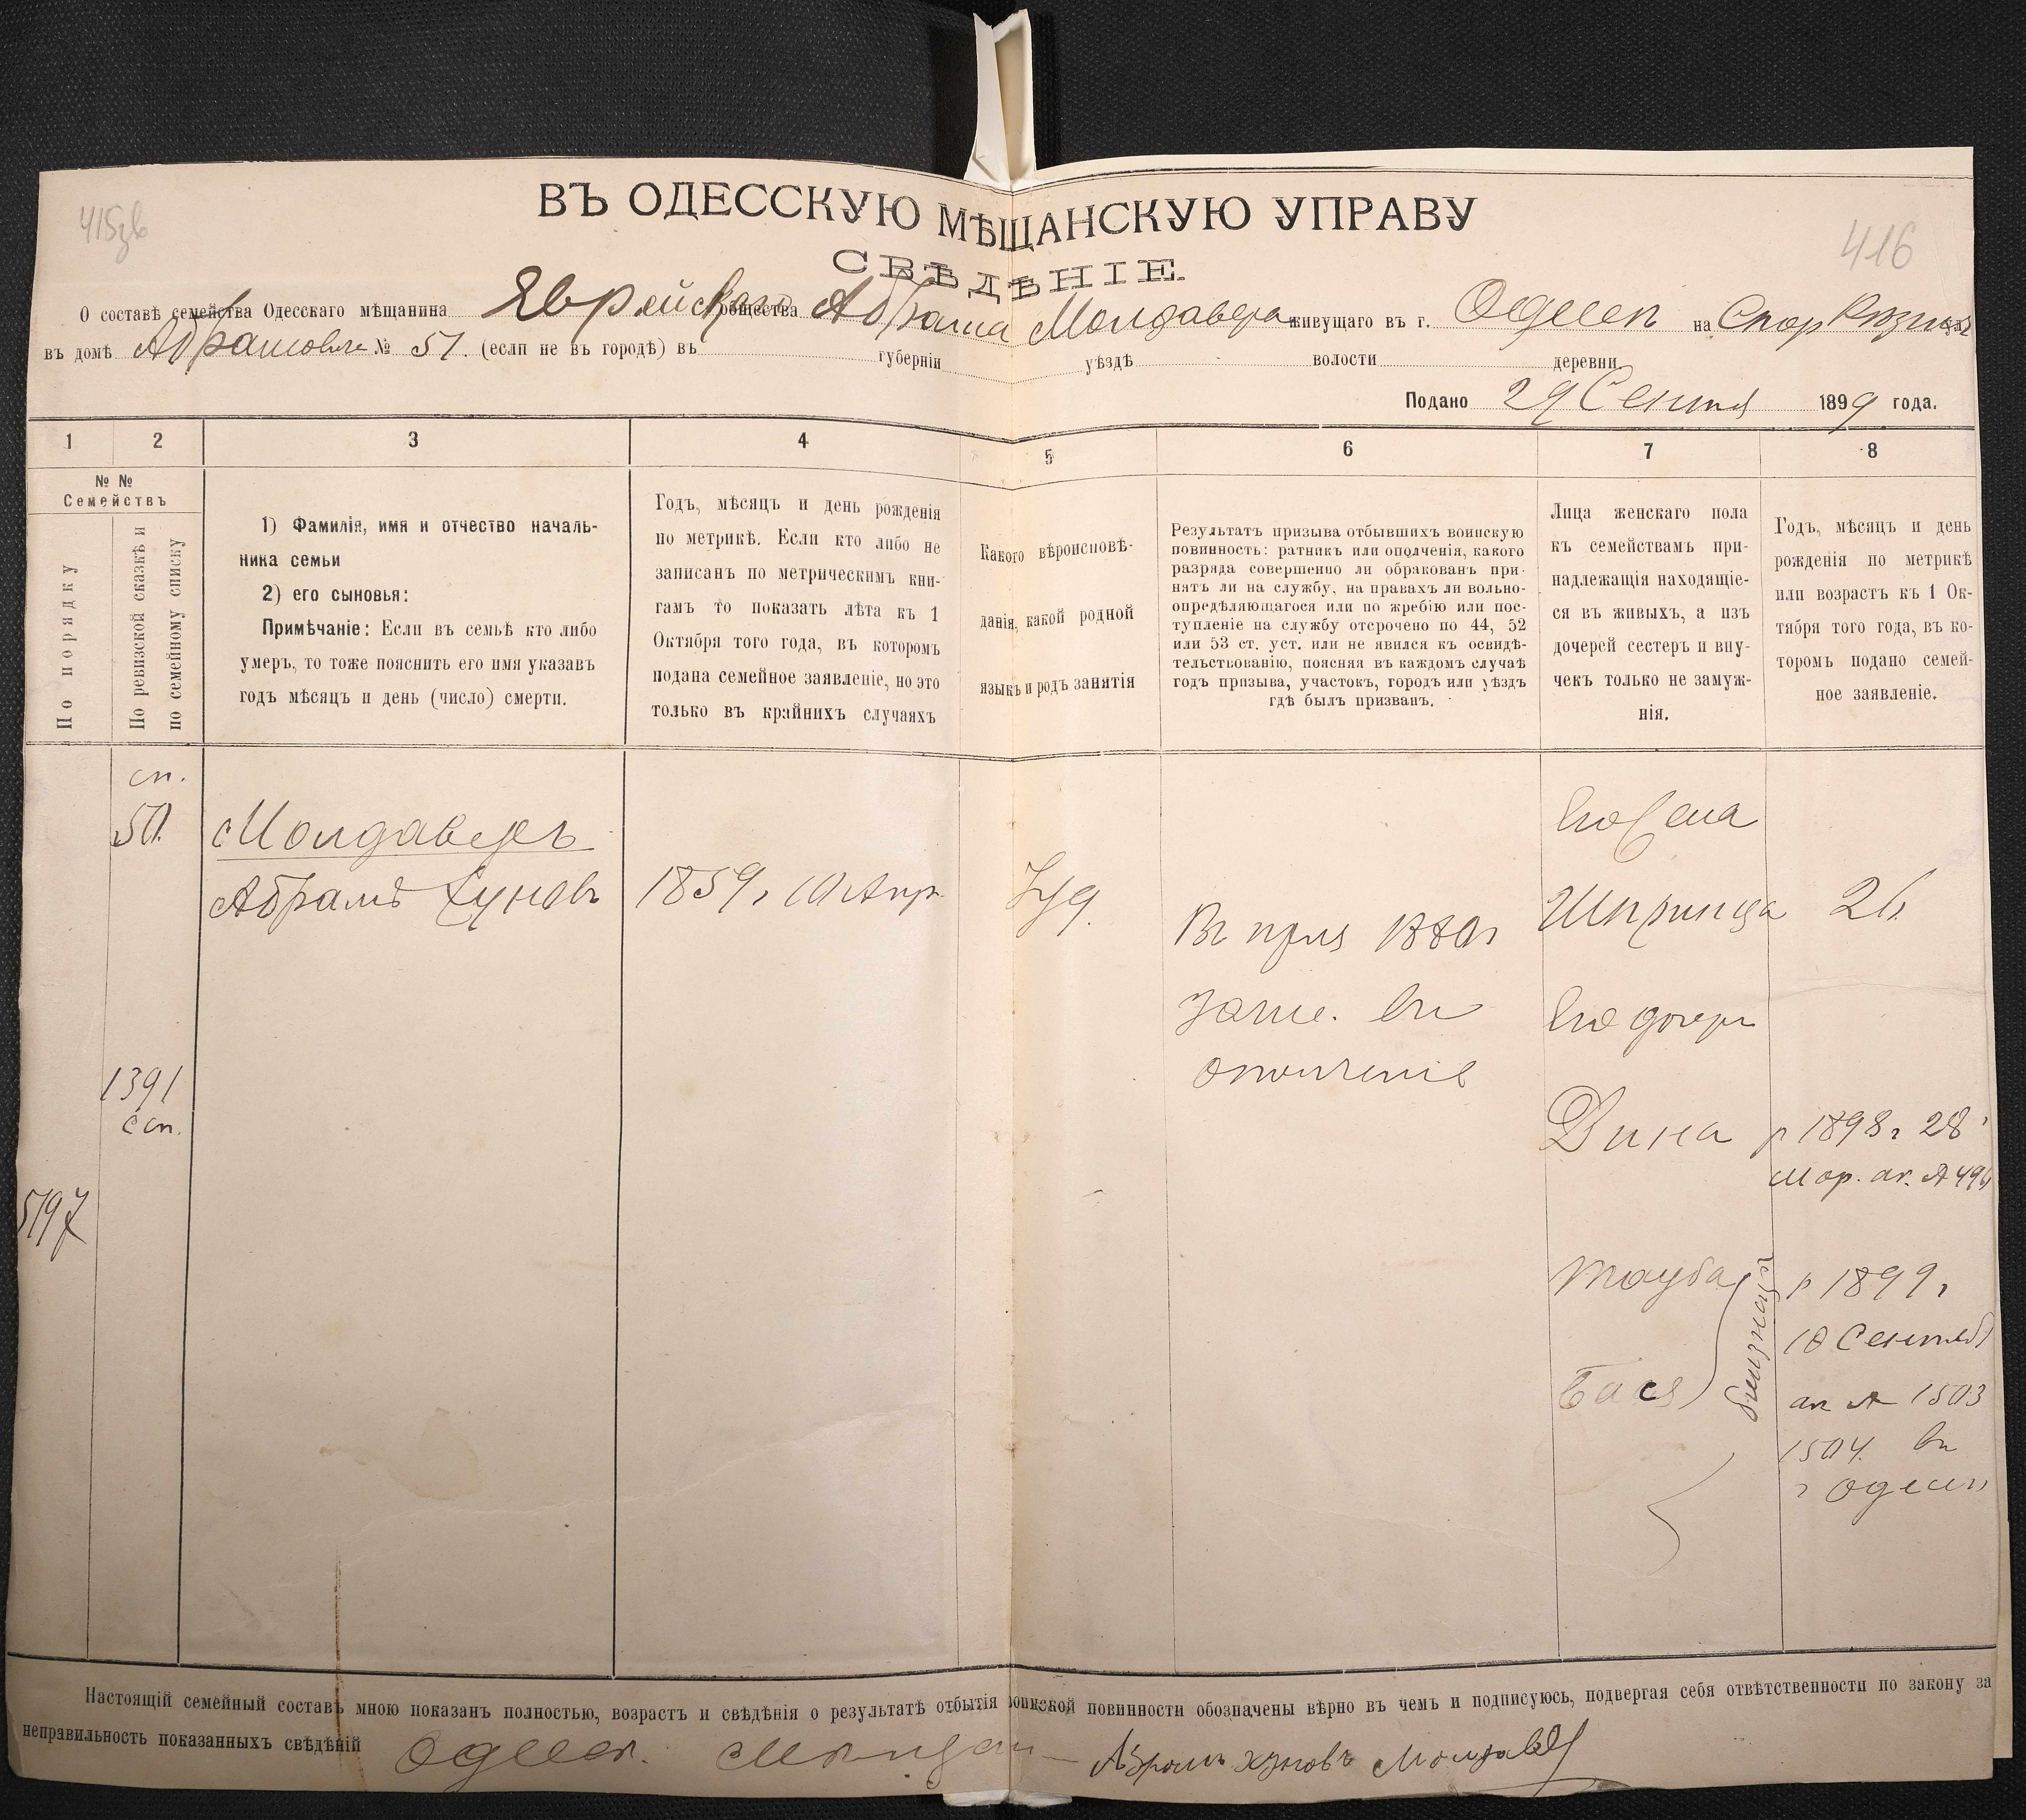 415зв
416
ВЪ ОДЕССКУЮ МѢЩАНСКУЮ УПРАВУ
СВѢДѢНІЕ
О составѣ семейства Одесскаго мѣщанина Еврейскаго общества Абрама Молдавера живущаго въ г. Одессѣ на
въ домѣ Абрамовича № 51. (если не въ городѣ) въ губерніи уѣздѣ волости деревни
Подано 29 Сентя 1899 года.
1 2 3 4 5 6 7 8
№ №
Семействъ
По порядку
По ревизской сказкѣ и
по семейному списку
1) Фамилія, имя и отчество началь-
ника семьи
2) его сыновья:
Примѣчаніе: Если въ семьѣ кто либо
умеръ, то тоже пояснить его имя указавъ
годъ мѣсяцъ и день (число) смерти.
Годъ, мѣсяцъ и день рожденія
по метрикѣ. Если кто либо не
записанъ по метрическимъ кни-
гамъ то показать лѣта къ 1
Октября того года, въ которомъ
подана семейное заявленіе, но это
только въ крайнихъ случаяхъ
Какого вѣроисповѣ-
данія, какой родной
языкъ и родъ занятія
Результатъ призыва отбывшихъ воинскую
повинность: ратникъ или ополченія, какого
разряда совершенно ли обракованъ при-
нятъ ли на службу, на правахъ ли вольно-
опредѣляющагося или по жребію или пос-
тупленіе на службу отсрочено по 44, 52
или 53 ст. уст. или не явился къ освидѣ-
тельствованію, поясняя въ каждомъ случаѣ
годъ призыва, участокъ, городъ или уѣздъ
гдѣ былъ призванъ.
Лица женскаго пола
къ семействамъ при-
надлежащія находящіе-
ся въ живыхъ, а изъ
дочерей сестеръ и вну-
чекъ только не замуж-
нія.
Годъ, мѣсяцъ и день
рожденія по метрикѣ
или возрастъ къ 1 Ок-
тября того года, въ ко-
торомъ подано семей-
ное заявленіе.
сп.
501.
Молдаверъ
Абрамъ Хуновъ
1859 г 10 Апр.
Іуд.
Въ приз 1880 г
зачис. въ
ополченіе
Его жена
Шпринца 26
Его дочери
Дина р 1898 г 28
мар. ак. № 496
1391
с сп.
5197
Тауба р 1899 г
18 Сентяб
Бася
близнецы
ак № 1503
1504. въ
г Одессѣ
Настоящій семейный составъ мною показанъ полностью, возрастъ и свѣдѣнія о результатѣ отбытія воинской повинности обозначены вѣрно въ чемъ и подписуюсь, подвергая себя отвѣтственности по закону за
неправильность показанныхъ свѣдѣній Одесск. Мѣщан Абрамъ Хуновъ Молдавер